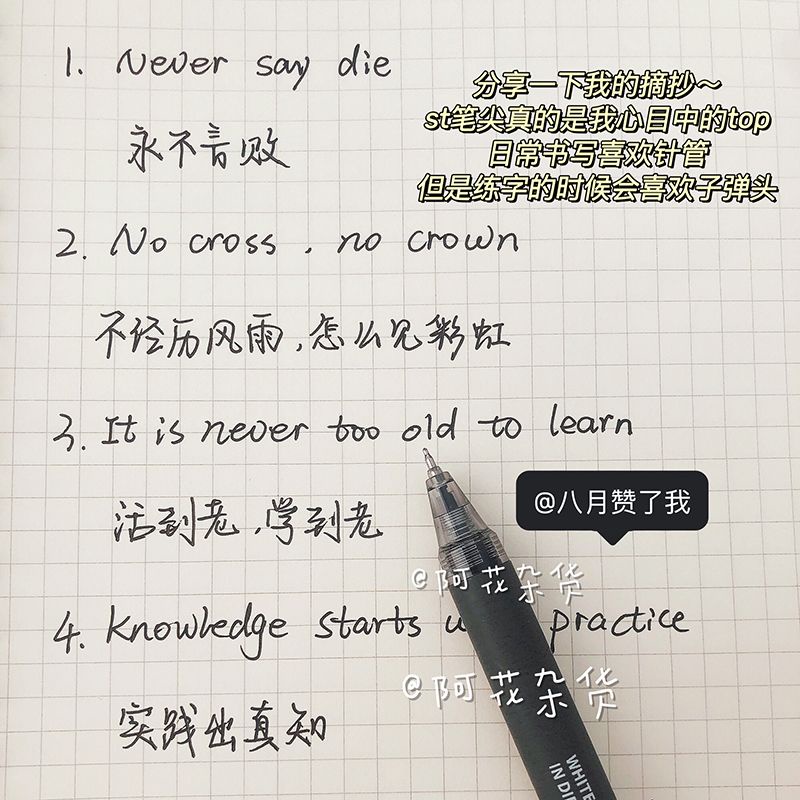 1. Never say die
永不言败
分享一下我的摘抄～
st笔尖真的是我心目中的top
日常书写喜欢针管
但是练字的时候会喜欢子弹头
2. No cross , no crown
不经历风雨,怎么见彩虹
3. It is never too old to learn
活到老,学到老
@八月赞了我
@阿花杂货
4. Knowledge starts practice
@阿花杂货
实践出真知
WHITE
IN DI